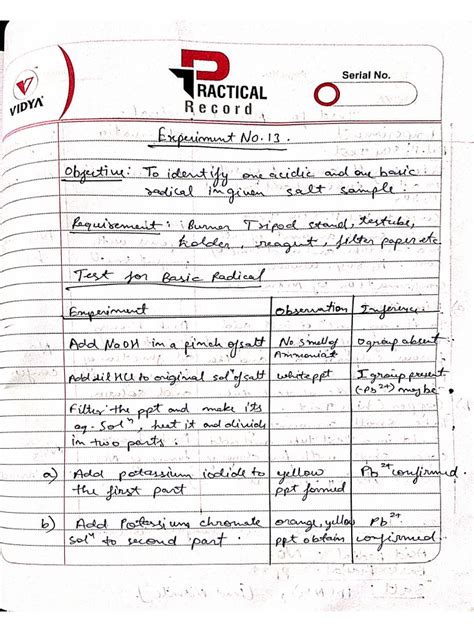 VIDYA
PRACTICAL
Record
Serial No.
Experiment No. 13.
Objective: To identify one acidic and one basic
radical in given salt sample.
Requirement: Burner Tripod stand, testtube,
holder, reagent, filter paper etc.
Test for Basic Radical
Experiment Observation Inference
Add NaOH in a pinch of salt No smell of Ogroup absent
Ammonia↑
Add dil HCl to original solⁿ of salt white ppt I group present
(-Pb²⁺) may be
Filter the ppt and make its
aq. Solⁿ, heat it and divide
in two parts.
a) Add potassium iodide to yellow Pb²⁺ confirmed.
the first part ppt formed
b) Add Potassium chromate orange, yellow Pb²⁺
solⁿ to second part. ppt obtain confirmed.